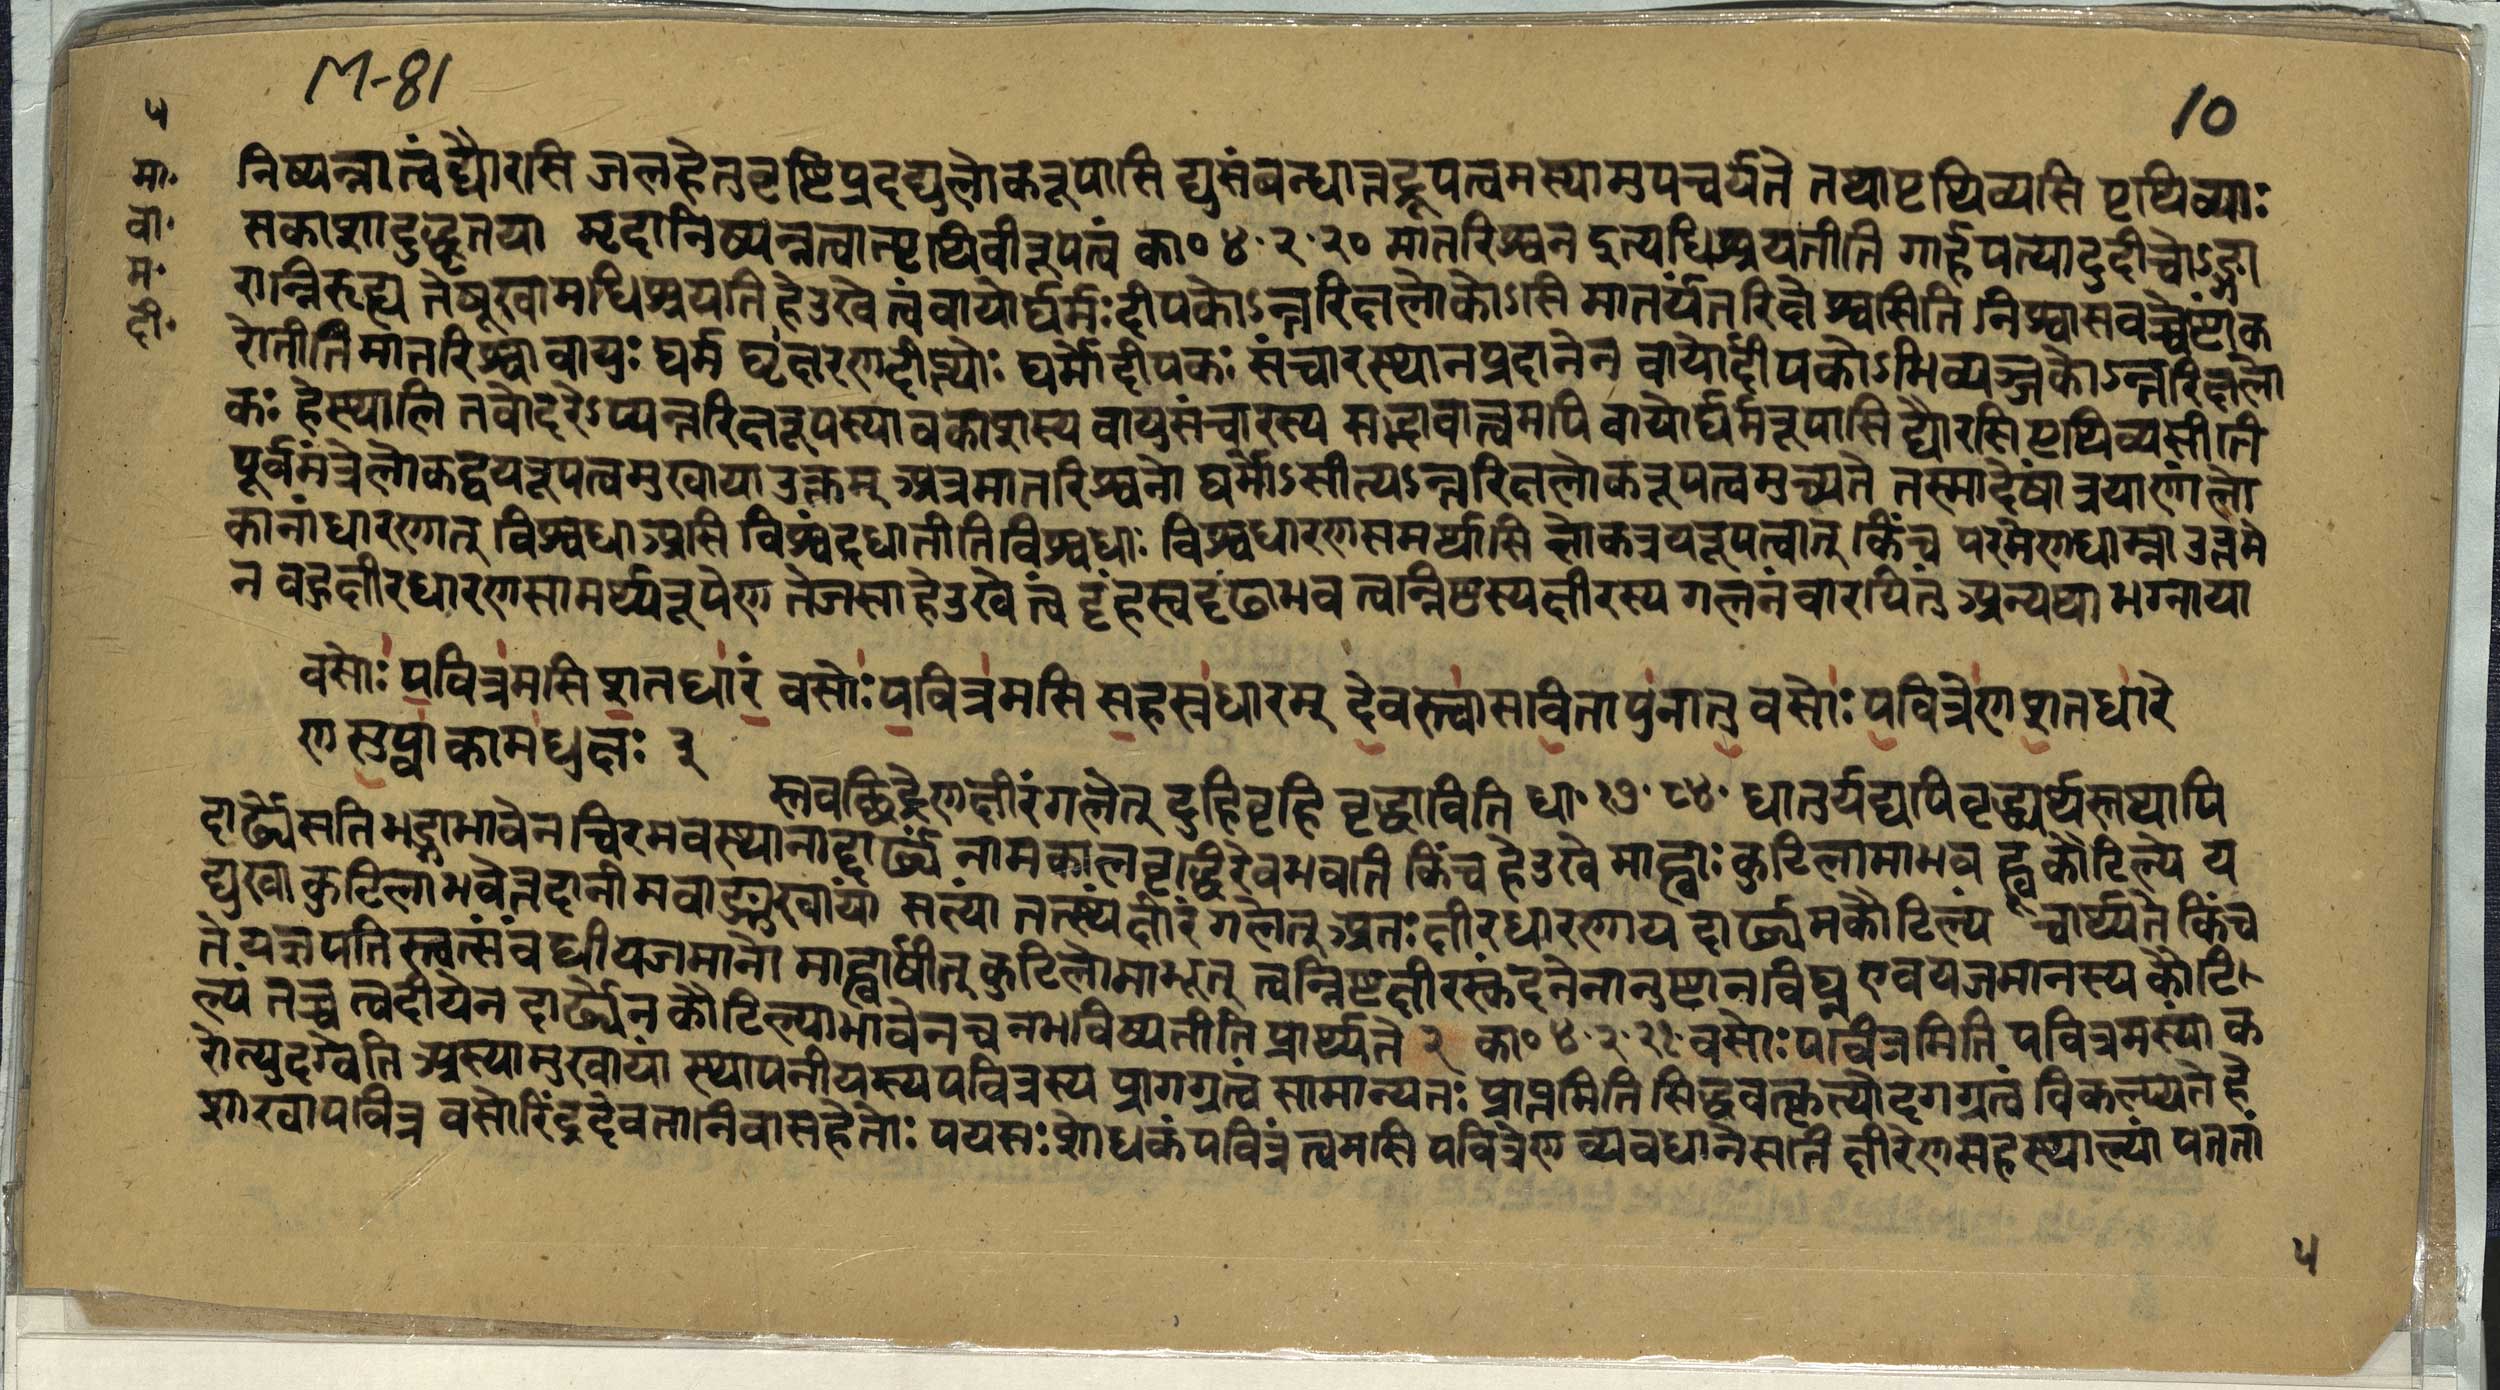 M-81
10
५
मा·
वा·
म·
दी·
निष्पन्ना त्वं द्यौरसि जलहेतुवृष्टिप्रदद्युलोकरूपासि द्युसंबन्धात्तद्रूपत्वमस्यामुपचर्यते तथा पृथिव्यसि पृथिव्याः
सकाशादुद्धृतया मृदा निष्पन्नत्वात्पृथिवीरूपत्वं का० ४·२·२० मातरिश्वन इत्यधिश्रयतीति गार्हपत्यादुदीचोऽङ्गा
रान्निरुह्य तेषूखामधिश्रयति हे उखे त्वं वायोर्घर्मः दीपकोऽन्तरिक्षलोकोऽसि मातर्यन्तरिक्षे श्वसिति निश्वासवच्चेष्टां क
रोतीति मातरिश्वा वायुः घर्म घृंक्षरणदीप्त्योः घर्मो दीपकः संचारस्थानप्रदानेन वायोर्दीपकोऽभिव्यञ्जकोऽन्तरिक्षलो
कः हे स्थालि तवोदरेऽप्यन्तरिक्षरूपस्यावकाशस्य वायुसंचारस्य सद्भावात्त्वमपि वायोर्घर्मरूपासि द्यौरसि पृथिव्यसीति
पूर्वमंत्रे लोकद्वयरूपत्वमुखाया उक्तम् अत्र मातरिश्वनो घर्मोऽसीत्यऽन्तरिक्षलोकरूपत्वमुच्यते तस्मादेषां त्रयाणां लो
कानां धारणात् विश्वधा असि विश्वं दधातीति विश्वधाः विश्वधारणसमर्थासि लोकत्रयरूपत्वात् किंच परमेण धाम्ना उत्तमे
न वद्रक्षीरधारणसामर्थ्यरूपेण तेजसा हे उखे त्वं दृंहस्व दृढा भव त्वन्निष्ठस्य क्षीरस्य गलनं वारयितुं अन्यथा भग्नाया
वसोः पवित्रमसि शतधारं वसोः पवित्रमसि सहस्रधारम् देवस्त्वा सविता पुनातु वसोः पवित्रेण शतधारे
ण सुप्वा कामधुक्षः ३
स्तव छिद्रेण क्षीरं गलेत् दृहि वृहि वृद्धाविति धा· १७·८४· धातुर्यद्यपि वृद्ध्यर्थस्तथापि
दार्ढ्ये सति भङ्गाभावेन चिरमवस्थानाद्दार्ढ्यं नाम कालवृद्धिरेव भवति किंच हे उखे मा ह्वाः कुटिला मा भव ह्वृ कौटिल्ये य
द्युखा कुटिला भवेत्तदानीमवाङ्मुखायां सत्यां तत्स्थं क्षीरं गलेत् अतः क्षीरधारणाय दार्ढ्यमकौटिल्यं चार्थ्यते किंच
ते यज्ञपतिस्त्वत्संबंधी यजमानो मा ह्वार्षीत् कुटिलो मा भूत् त्वन्निष्ठक्षीरस्कंदनेनानुष्ठानविघ्न एव यजमानस्य कौटि
ल्यं तच्च त्वदीयेन दार्ढ्येन कौटिल्याभावेन च न भविष्यतीति प्रार्थ्यते २ का० ४·२·२१· वसोः पवित्रमिति पवित्रमस्यां क
रोत्युदग्वेति अस्यामुखायां स्थापनीयस्य पवित्रस्य प्रागग्रत्वं सामान्यतः प्राप्तमिति सिद्धवत्कृत्योदगग्रत्वं विकल्प्यते हे
शाखापवित्र वसोरिंद्रदेवतानिवासहेतोः पयसः शोधकं पवित्रं त्वमसि पवित्रेण व्यवधाने सति क्षीरेण सह स्थाल्यां पततां
५